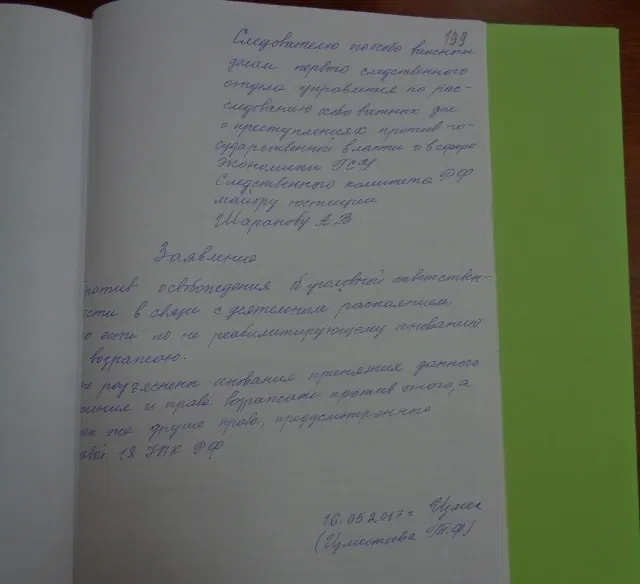 199
Следователю по особо важным
делам первого следственного
отдела управления по рас-
следованию особо важных дел
о преступлениях против го-
сударственной власти и в сфере
экономики ГСУ
Следственного комитета РФ
майору юстиции
Шаранову А.В.
Заявление
ротив освобождения от уголовной ответствен-
ости в связи с деятельным раскаянием
о есть по не реабилитирующему основанию
возражаю.
не разъяснены основания принятия данного
ения и право возражать против этого, а
же другие права, предусмотренные
авой 18 УПК РФ
16.05.2017 г.
(Т.Ф)